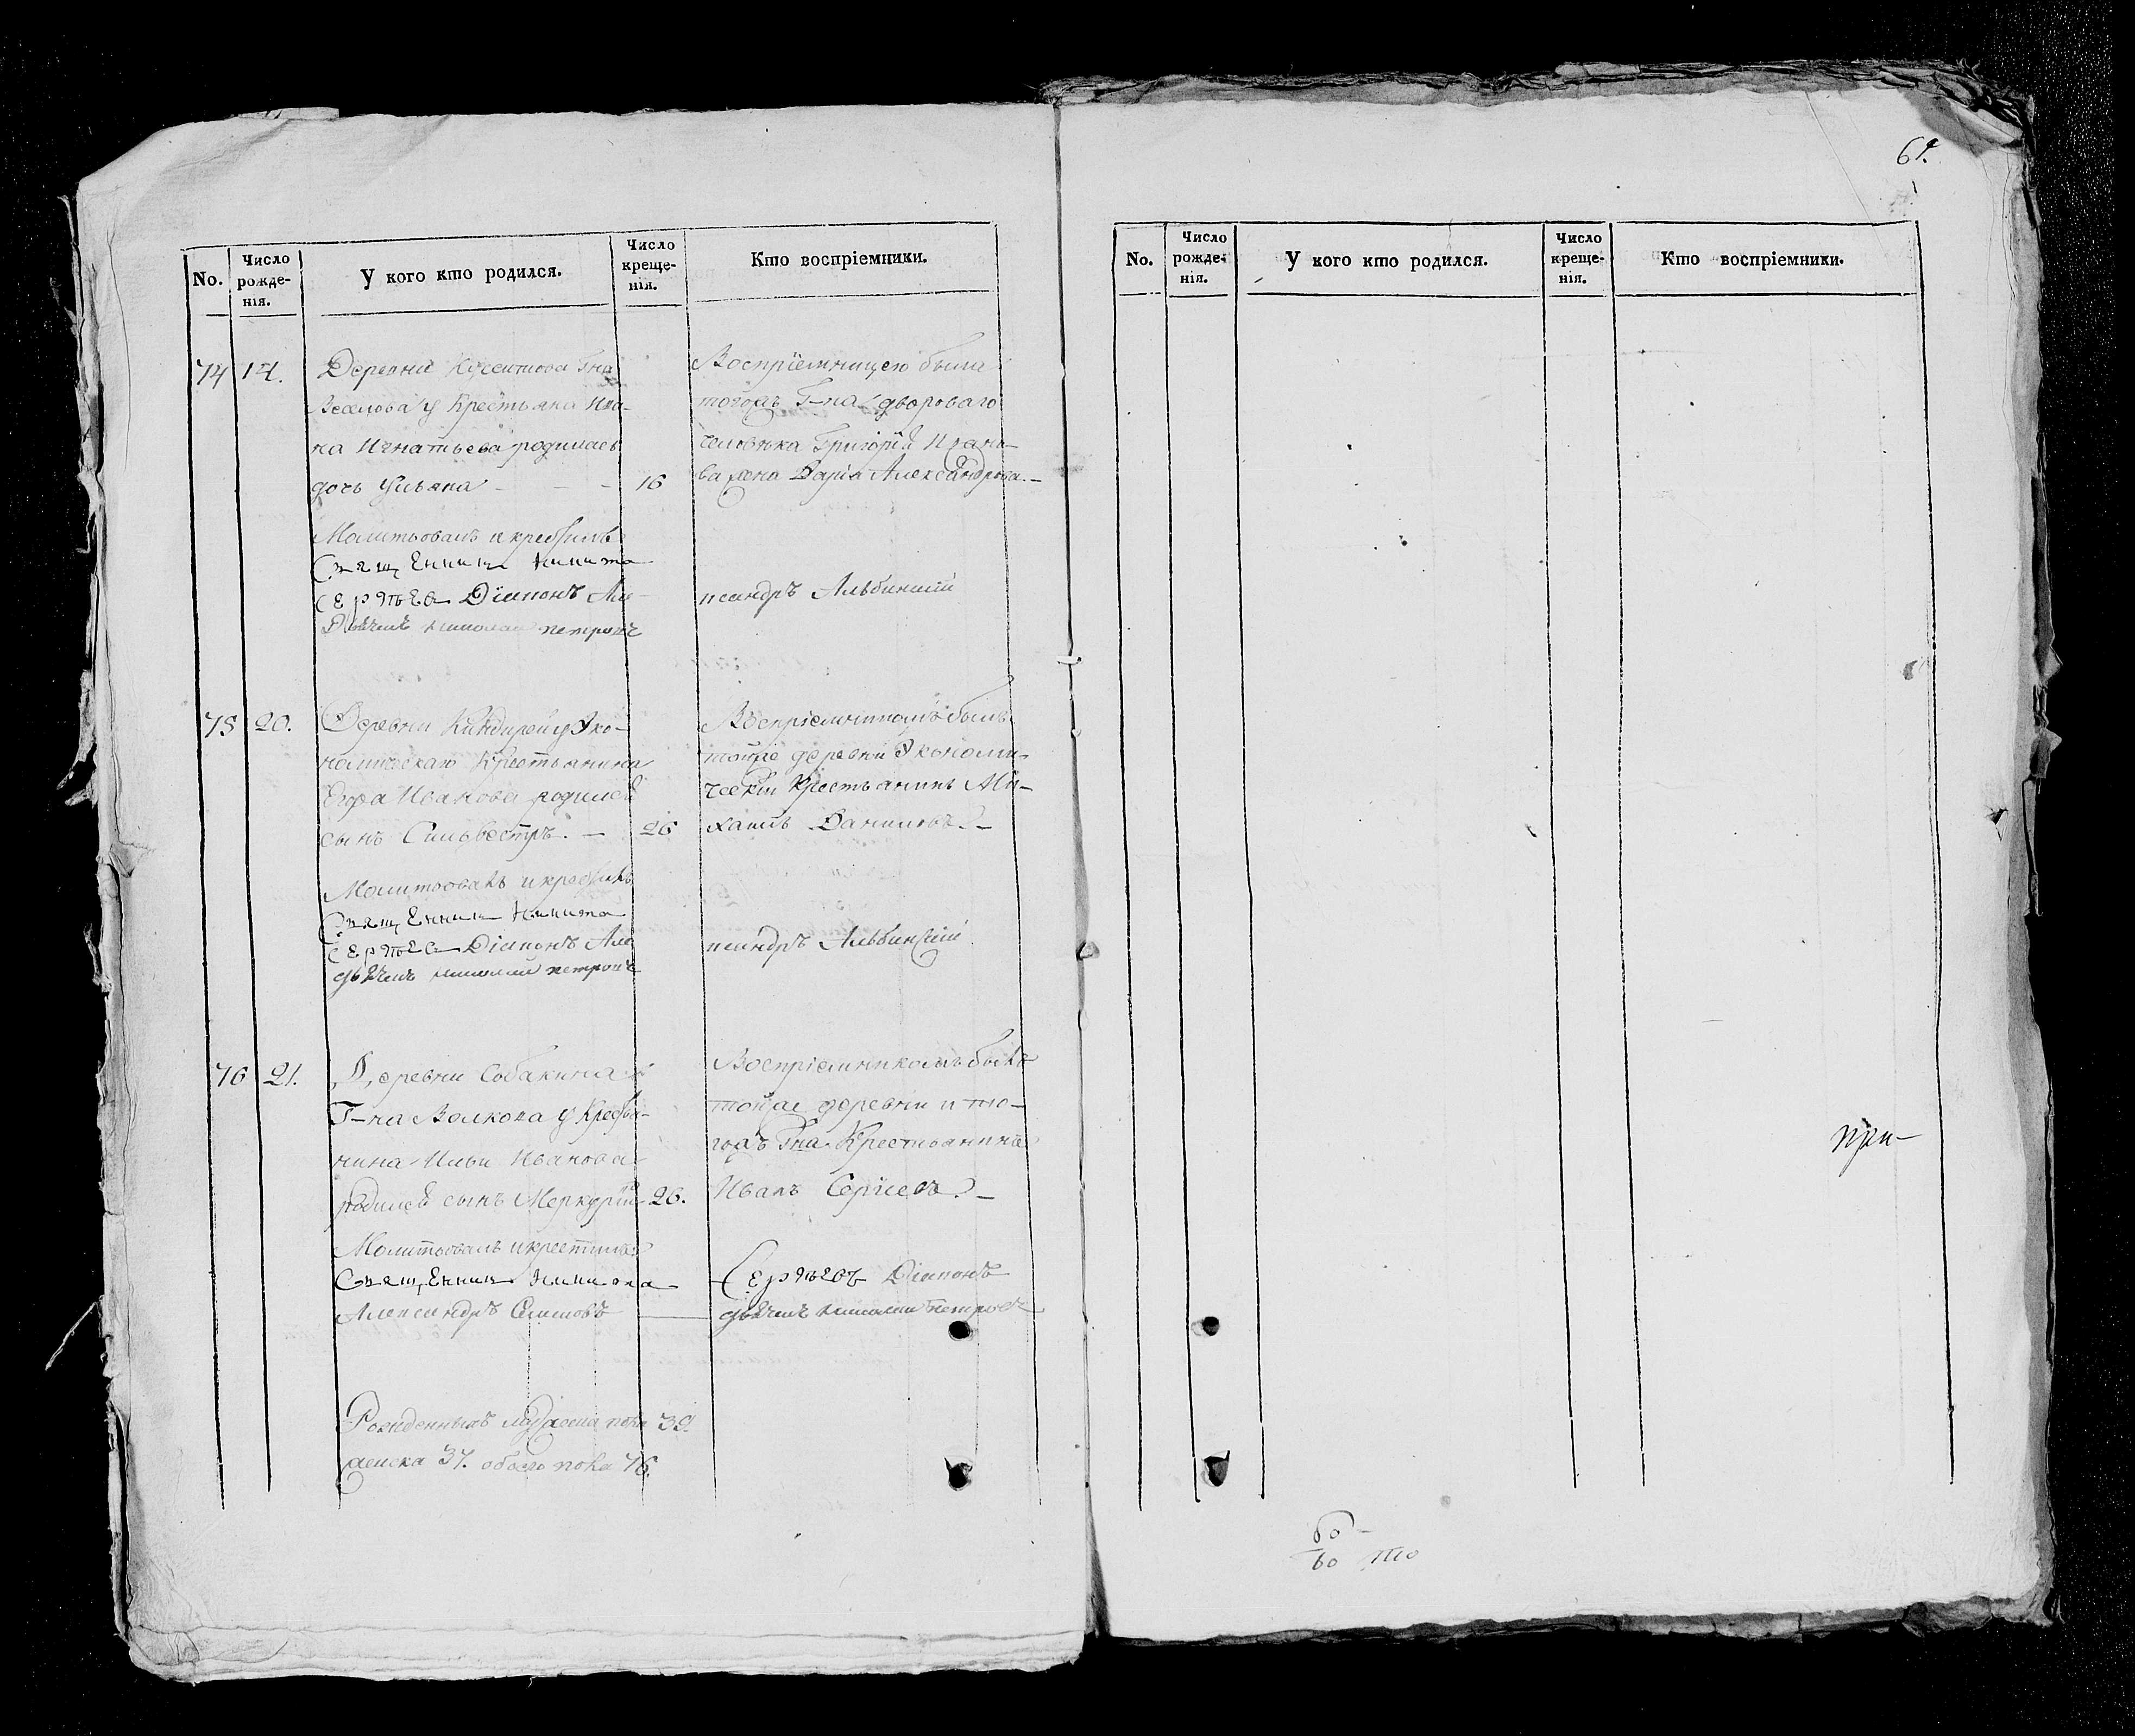 No.
Число рожде- нія.
У кого кто родился.
Число креще- нія.
Кто воспріемники.
74 14. Деревни Гна
у Крестьяна Ива-
на Игнатьева родилась
дочь Ульяна - - - 16
Воспріемницею была
тогожъ Г-на дворового
человѣка Григорія Ивано-
ва жена Дарія Александрова. -
Молитвовалъ и крестилъ
Священникъ Никита
Сергѣевъ Діаконъ Але-
ксандръ Альбинскій
Дьячекъ Николай Петровъ
75 20. Деревни у Эко-
номическаго Крестьянина
Егора Иванова родился
сынъ Сильвестръ. - 26
Воспріемникомъ былъ
тойже деревни Экономи-
ческій Крестьянинъ Ми-
хаилъ Даниловъ. -
Молитвовалъ и крестилъ
Священникъ Никита
Сергѣевъ Діаконъ Але
ксандръ Альбинскій
дьячекъ Николай Петровъ
76 21. Деревни Собакина
Г-на Волкова у Крестья-
нина Ильи Иванова
родился сынъ Меркурій 26.
Воспріемникомъ былъ
тойже деревни и то-
гожъ Гна Крестьянинъ
Иванъ Сергѣевъ. -
Молитвовалъ и крестилъ
Священникъ Никита Сергѣевъ Діаконъ
Александръ дьячекъ Николай Петровъ
Рожденныхъ мужеска пола 39
женска 37. обоего пола 76.
No.
Число рожде- нія.
У кого кто родился.
Число креще- нія.
Кто воспріемники.
при-
60